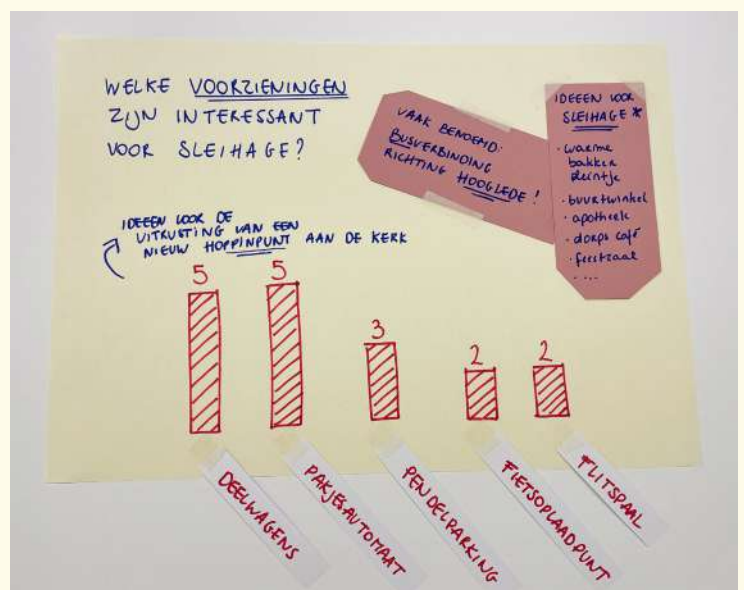 WELKE VOORZIENINGEN
ZIJN INTERESSANT
VOOR SLEIHAGE?
VAAK BENOEMD:
BUSVERBINDING
RICHTING HOOGLEDE!
IDEEEN VOOR
SLEIHAGE *
· warme
bakker
pleintje
· buurtwinkel
· apotheek
· dorps café
· feestzaal
· ....
IDEEEN VOOR DE
UITRUSTING VAN EEN
NIEUW HOPPINPUNT AAN DE KERK
5 5 3 2 2
DEELWAGENS
PAKJESAUTOMAAT
PENDELPARKING
FIETSOPLAADPUNT
FLITSPAAL